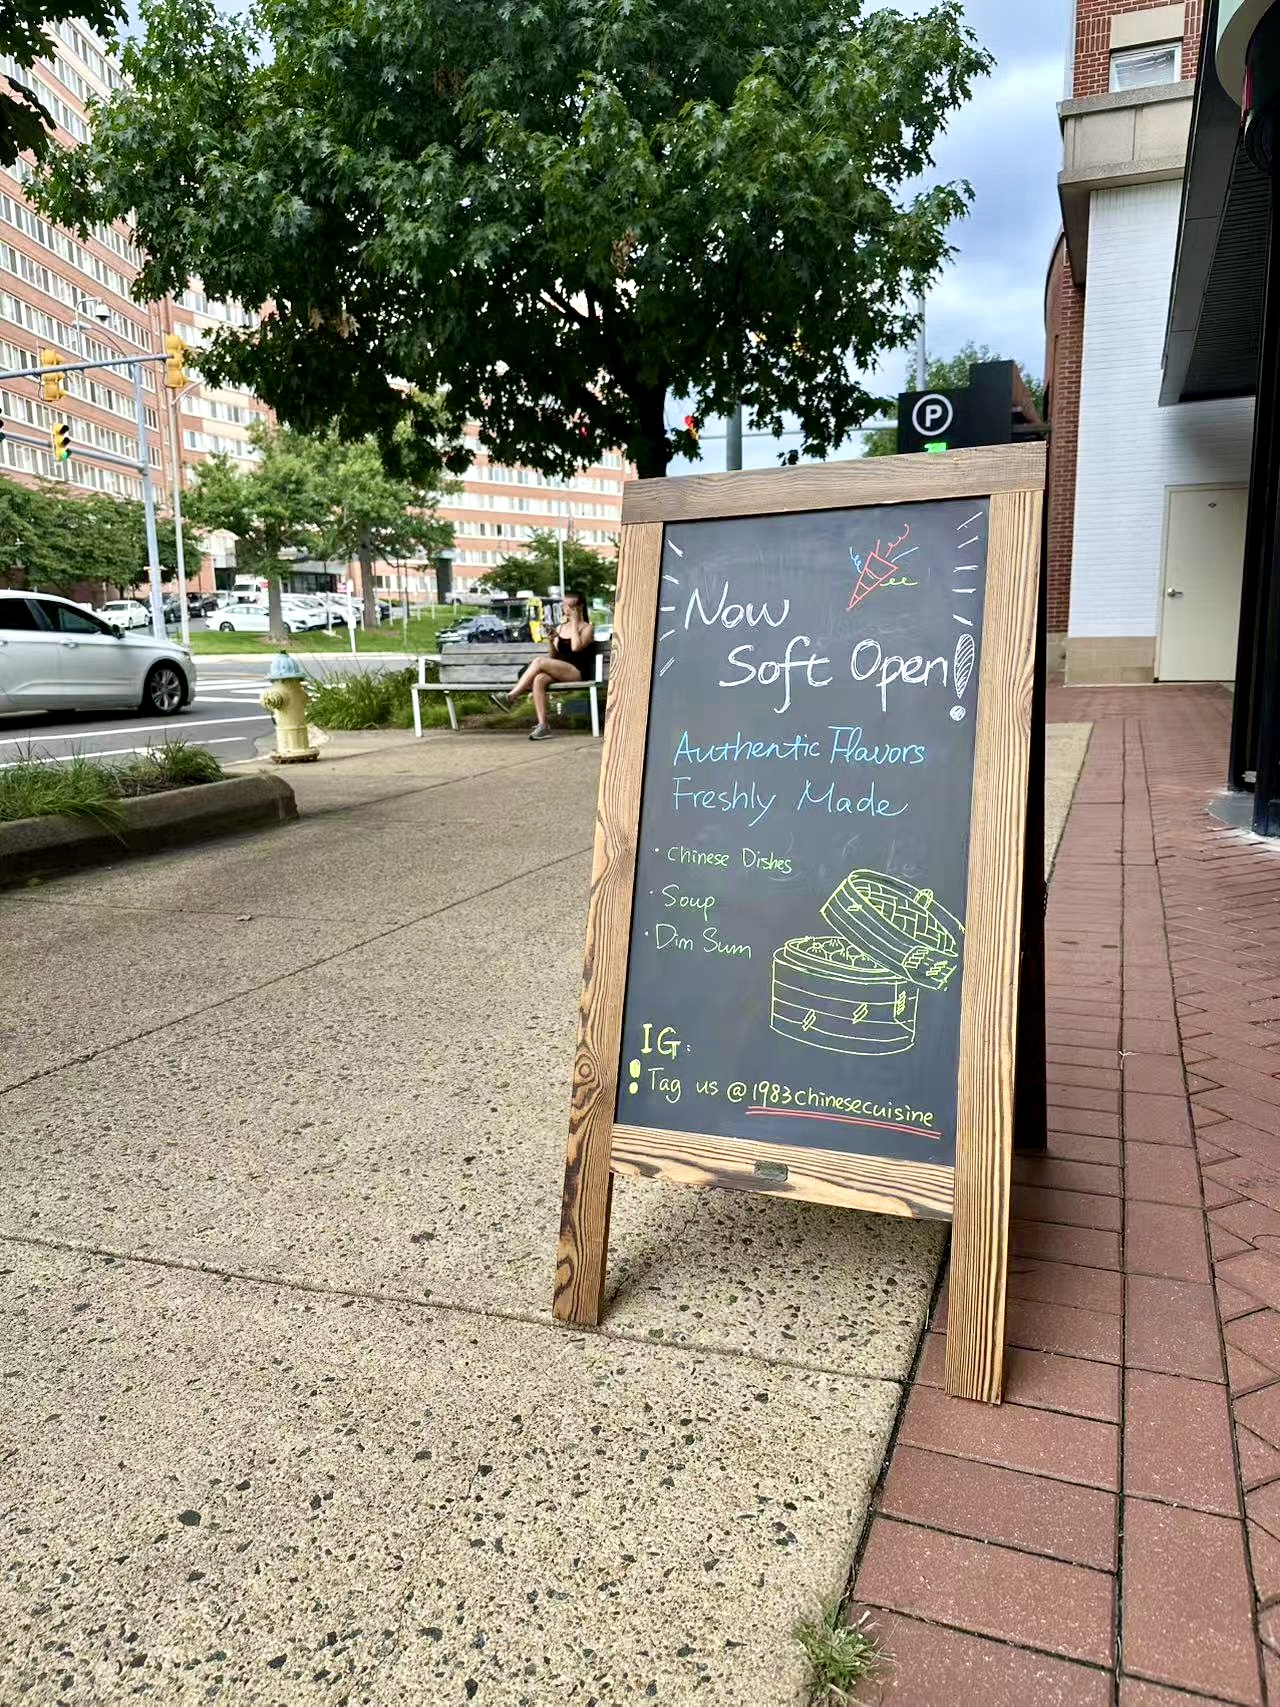 P
Now
Soft Open!
Authentic Flavors
Freshly Made
· Chinese Dishes
· Soup
· Dim Sum
IG:
! Tag us @1983chinesecuisine